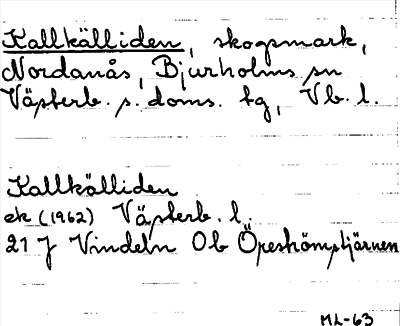 Kallkälliden, skogsmark,
Nordanås, Bjurholms sn
Västerb. s. doms. tg, Vb. l.
Kallkälliden
ek (1962) Västerb. l.
21 J Vindeln 0b Öreströmstjärnen
ML-63